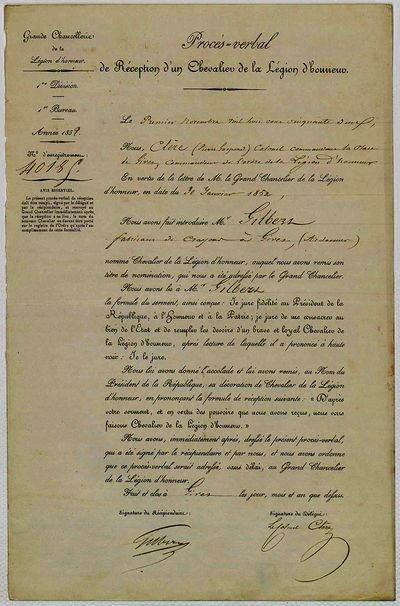 Grande Chancellerie
de la
Légion d'honneur.
1re Division.
1er Bureau.
Année 1852.
N° d'enregistrement:
4018
AVIS ESSENTIEL.
Le présent procès-verbal de réception
doit être rempli, signé par le délégué et
par le récipiendaire, et renvoyé au
Grand Chancelier immédiatement après
que la réception a eu lieu; le nom du
nouveau Chevalier ne devant être porté
sur le registre de l'Ordre qu'après l'ac-
complissement de cette formalité.
Procès-verbal
de Réception d'un Chevalier de la Légion d'honneur.
Le Premier novembre mil huit cent cinquante deux,
Nous, Clère Colonel commandant la Place
de Givet, Commandeur de l'ordre de la Légion d'honneur
En vertu de la lettre de M. le Grand Chancelier de la Légion
d'honneur, en date du Janvier 1852,
Nous avons fait introduire Mr Gilbert
fabricant de Crayons à Givet (Ardennes)
nommé Chevalier de la Légion d'honneur, auquel nous avons remis son
titre de nomination, qui nous a été adressé par le Grand Chancelier.
Nous avons lu à Mr Gilbert
la formule du serment, ainsi conçue: Je jure fidélité au Président de la
République, à l'Honneur et à la Patrie; je jure de me consacrer au
bien de l'État et de remplir les devoirs d'un brave et loyal Chevalier de
la Légion d'honneur, après lecture de laquelle il a prononcé à haute
voix: Je le jure.
Nous lui avons donné l'accolade et lui avons remis, au Nom du
Président de la République, sa décoration de Chevalier de la Légion
d'honneur, en prononçant la formule de réception suivante: « D'après
votre serment, et en vertu des pouvoirs que nous avons reçus, nous vous
faisons Chevalier de la Légion d'honneur. »
Nous avons, immédiatement après, dressé le présent procès-verbal,
qui a été signé par le récipiendaire et par nous, et nous avons ordonné
que ce procès-verbal serait adressé, sans délai, au Grand Chancelier
de la Légion d'honneur.
Fait et clos à Givet les jour, mois et an que dessus.
Signature du Récipiendaire:
Signature du Délégué:
Gilbert
Le Colonel Clère